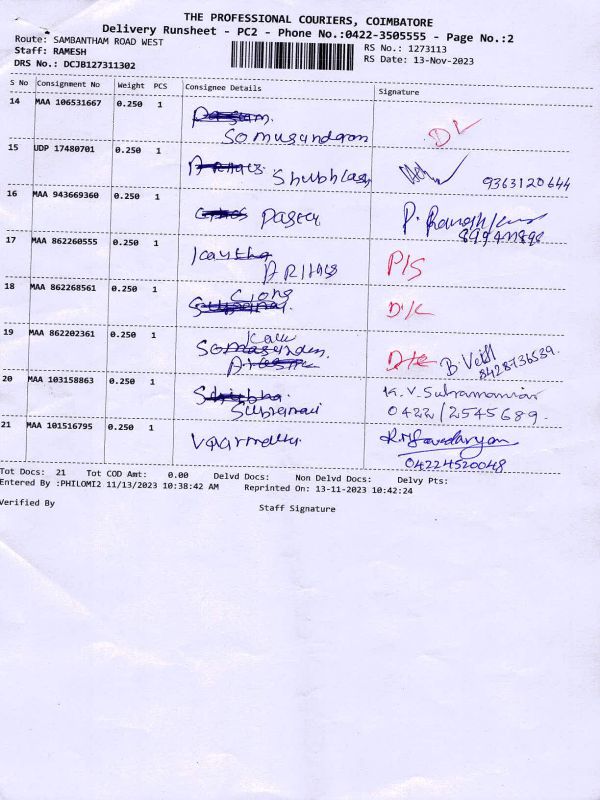 THE PROFESSIONAL COURIERS, COIMBATORE
Delivery Runsheet - PC2 - Phone No.:0422-3505555 - Page No.:2
Route: SAMBANTHAM ROAD WEST
RS No.: 1273113
Staff: RAMESH
RS Date: 13-Nov-2023
DRS No.: DCJB127311302
S No Consignment No Weight PCS Consignee Details Signature
14 MAA 106531667 0.250 1
Somusundaram D/L
15 UDP 17480701 0.250 1
Shubhlaxn 9363120644
16 MAA 943669360 0.250 1
17 MAA 862260555 0.250 1
P/S
18 MAA 862268561 0.250 1
D/L
19 MAA 862202361 0.250 1
8428736539.
20 MAA 103158863 0.250 1
K.V. Subramanian
0422/2545689.
21 MAA 101516795 0.250 1
04224520048
Tot Docs: 21 Tot COD Amt: 0.00 Delvd Docs: Non Delvd Docs: Delvy Pts:
Entered By :PHILOMI2 11/13/2023 10:38:42 AM Reprinted On: 13-11-2023 10:42:24
Verified By
Staff Signature